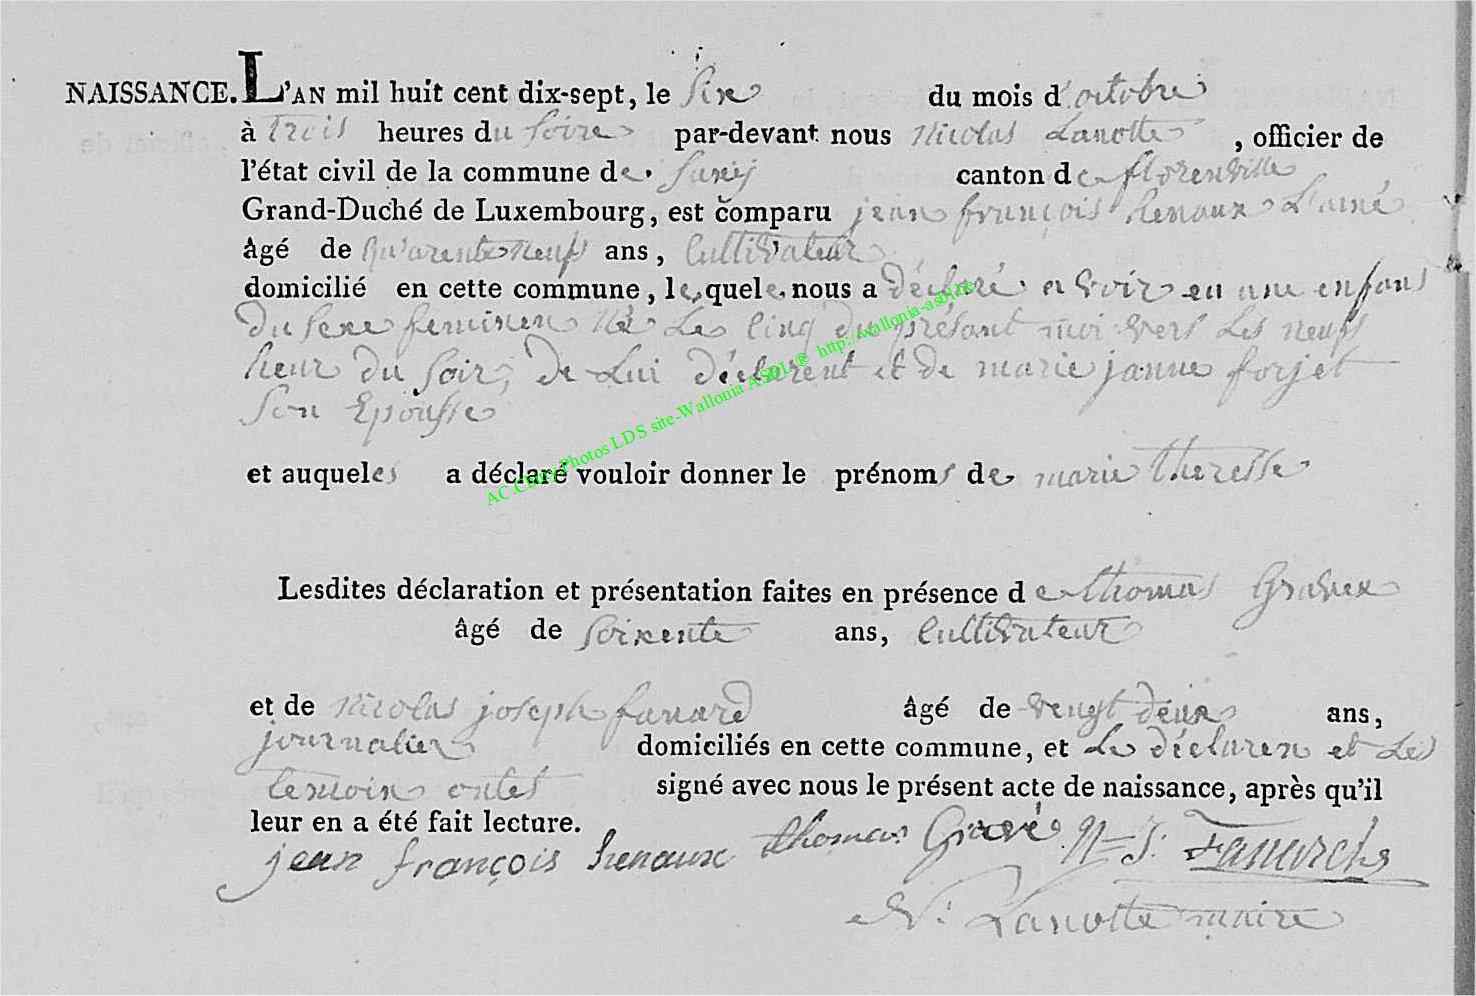 NAISSANCE. L'AN mil huit cent dix-sept, le six du mois d'octobre
à trois heures du soire par-devant nous Nicolas Lanotte, officier de
l'état civil de la commune de canton de florenville
Grand-Duché de Luxembourg, est comparu jean françois henaux L'ainé
âgé de quarente neuf ans, Cultivateur
domicilié en cette commune, lequel nous a déclaré avoir eu une enfans
du sexe feminen né le Cinq du présant moi vers les neufs
heur du soir, de Lui déclarent et de marie janne forjet
son Epousse
et auqueles a déclaré vouloir donner le prénoms de marie theresse
Lesdites déclaration et présentation faites en présence de thomas
âgé de soixente ans, Cultivateur
et de Nicolas joseph âgé de vengt deux ans,
journalier domiciliés en cette commune, et Le déclaren et Les
temoin ontes signé avec nous le présent acte de naissance, après qu'il
leur en a été fait lecture.
jean françois henaux thomas N= J:
N: Lanotte maire
AC Photos LDS site-Wallonia ASBL® http://wallonia-asbl.be